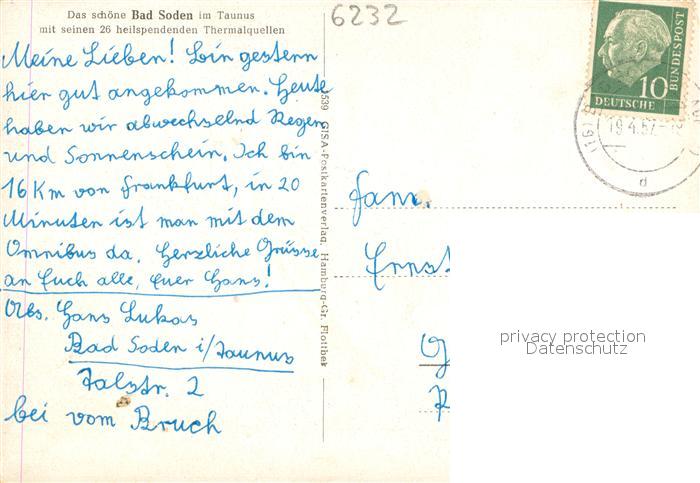 Das schöne Bad Soden im Taunus
mit seinen 26 heilspendenden Thermalquellen
6232
Meine Lieben! Bin gestern
hier gut angekommen. Heute
haben wir abwechselnd Regen
und Sonnenschein. Ich bin
16 Km von Frankfurt, in 20
Minuten ist man mit dem
Omnibus da. Herzliche Grüsse
an Euch alle, Euer Hans!
Abs. Hans Lukas
Bad Soden i/Taunus
Talstr. 2
bei vom Bruch
GISA-Postkartenverlag, Hamburg-Gr. Flottbek
10
DEUTSCHE BUNDESPOST
19.4.57
d
Fam.
Ernst
privacy protection
Datenschutz